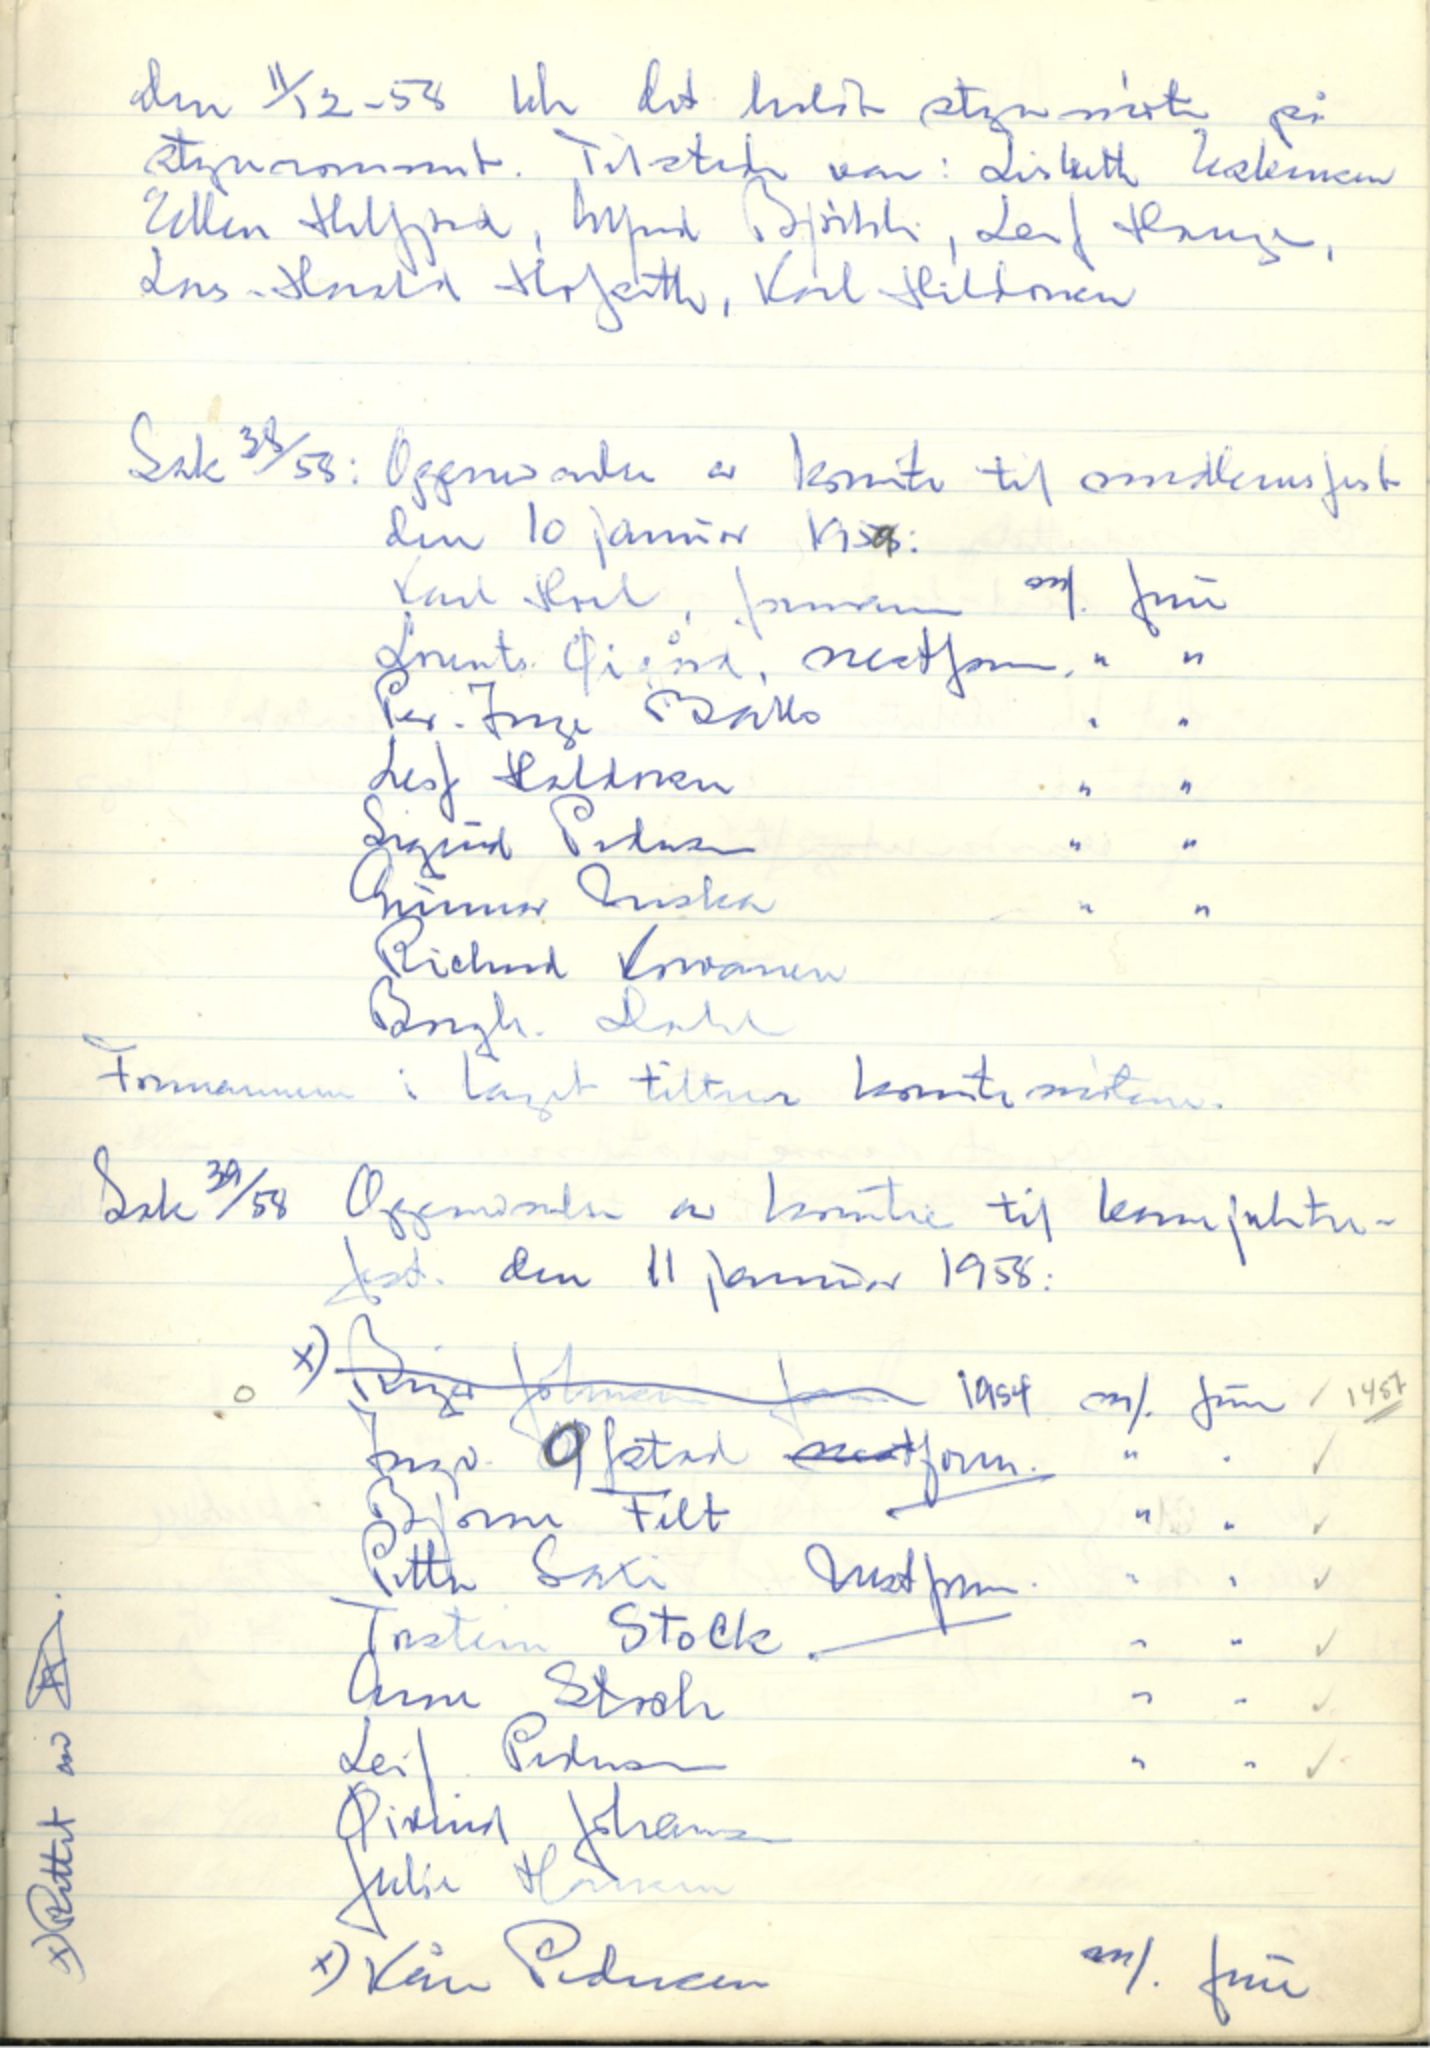 den 11/12-58 ble det holdt styremøte på
styrerommet. Tilstede var: Lisbeth
Ellen, Leif Hauge,
Lars-Harald Hofseth, Karl Hildonen
Sak 38/58: Oppnevnelse av komite til medlemsfest
den 10 januar 1959:
Karl Hoel, formann m/. frue
Lorents Øigård, nestform. " "
Per-Inge " "
Leif Haldorsen " "
Sigurd Pedersen " "
Gunnar Niska " "
Richard Korvanen
Borgh. Dahl
Formannen i laget tiltrer komitemøtene.
Sak 39/58 Oppnevnelse av komite til
fest. den 11 januar 1958:
x) Birger Johansen form 1954 m/. frue ✓ 1457
Ingv. Ofstad nestform. " " ✓
Bjarne Filt " " ✓
Petter Saxi Nestform. " " ✓
Torstein Stock. " " ✓
Arne " " ✓
Leif Pedersen " " ✓
Øivind Johansen
Julie Hansen
x) Kåre Pedersen m/. frue
x) Rettet av